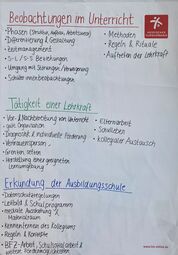 Beobachtungen im Unterricht
-Phasen (Struktur, Aufbau, Arbeitsweise)
-Differenzierung & Gestaltung
-Zeitmanagement
-S-L / S-S Beziehungen
-Umgang mit Störungen / Verweigerung
-Schüler:innenbeobachtungen
- Methoden
- Regeln & Rituale
- Auftreten der Lehrkraft
Tätigkeit einer Lehrkraft
- Vor- & Nachbereitung von Unterricht
- gute Organisation
- Diagnostik & individuelle Förderung
- Vertrauensperson
- Grenzen setzen
- Herstellung eines geregelten
Lernumgebung
- Elternarbeit
- Schulleben
- kollegialer Austausch
Erkundung der Ausbildungsschule
- Datenschutzregelungen
- Leitbild & Schulprogramm
- mediale Ausstattung &
Materialraum
- Kennenlernen des Kollegiums
- Regeln & Konzepte
- BFZ-Arbeit, Schulsozialarbeit &